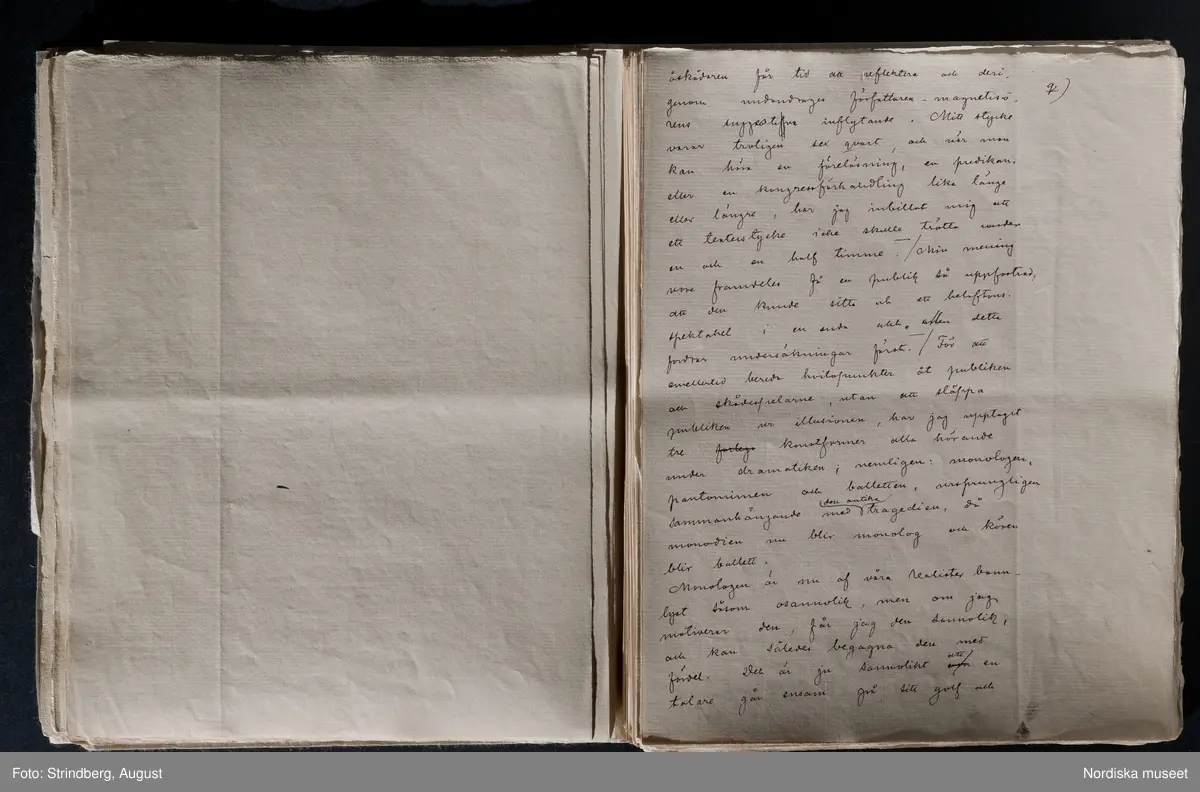 åskådaren får tid att reflektera och deri-
genom undandrages författaren-magnetisö-
rens suggestiva inflytande. Mitt stycke
varar troligen sex qvart, och när man
kan höra en föreläsning, en predikan,
eller en kongressförhandling lika länge
eller längre, har jag inbillat mig att
ett teaterstycke icke skulle trötta under
en och en half timme. / Min mening
vore framdeles få en publik så uppfostrad,
att den kunde sitta ut ett helaftons-
spektakel i en enda akt. Men detta
fordrar undersökningar först. / För att
emellertid bereda hvilopunkter åt publiken
och skådespelarne, utan att släppa
publiken ur illusionen, har jag upptaget
tre konstformer alla hörande
under dramatiken; nemligen: monologen,
pantomimen och balletten, ursprungligen
den antika
sammanhängande med tragedien, då
monodien nu blir monolog och kören
blir ballett.
Monologen är nu af våra Realister bann-
lyst såsom osannolik, men om jag
motiverar den, får jag den sannolik,
och kan således begagna den med
fördel. Det är ju sannolikt att en
talare går ensam på sitt golf och
9)
Foto: Strindberg, August
Nordiska museet